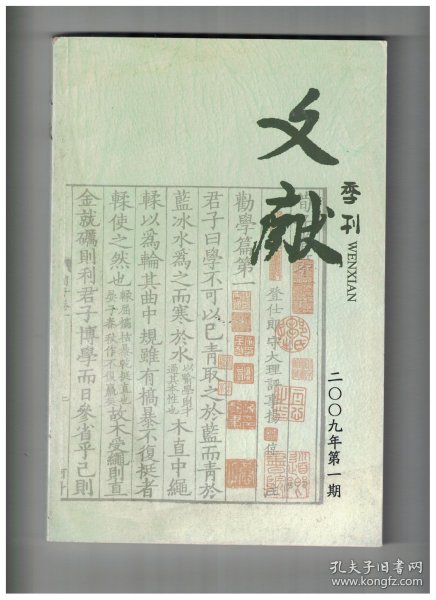 文獻
季刊
WENXIAN
二〇〇九年第一期
荀
登仕郎守大理評事楊
注
勸學篇第一
君子曰學不可以已青取之於藍而青於
藍冰水爲之而寒於水
以喻學則才
過其本性也
木直中繩
輮以爲輪其曲中規雖有槁暴不復挺者
輮使之然也
故不受繩則直
金就礪則利君子博學而日參省乎己則
孔夫子旧书网
www.kongfz.com